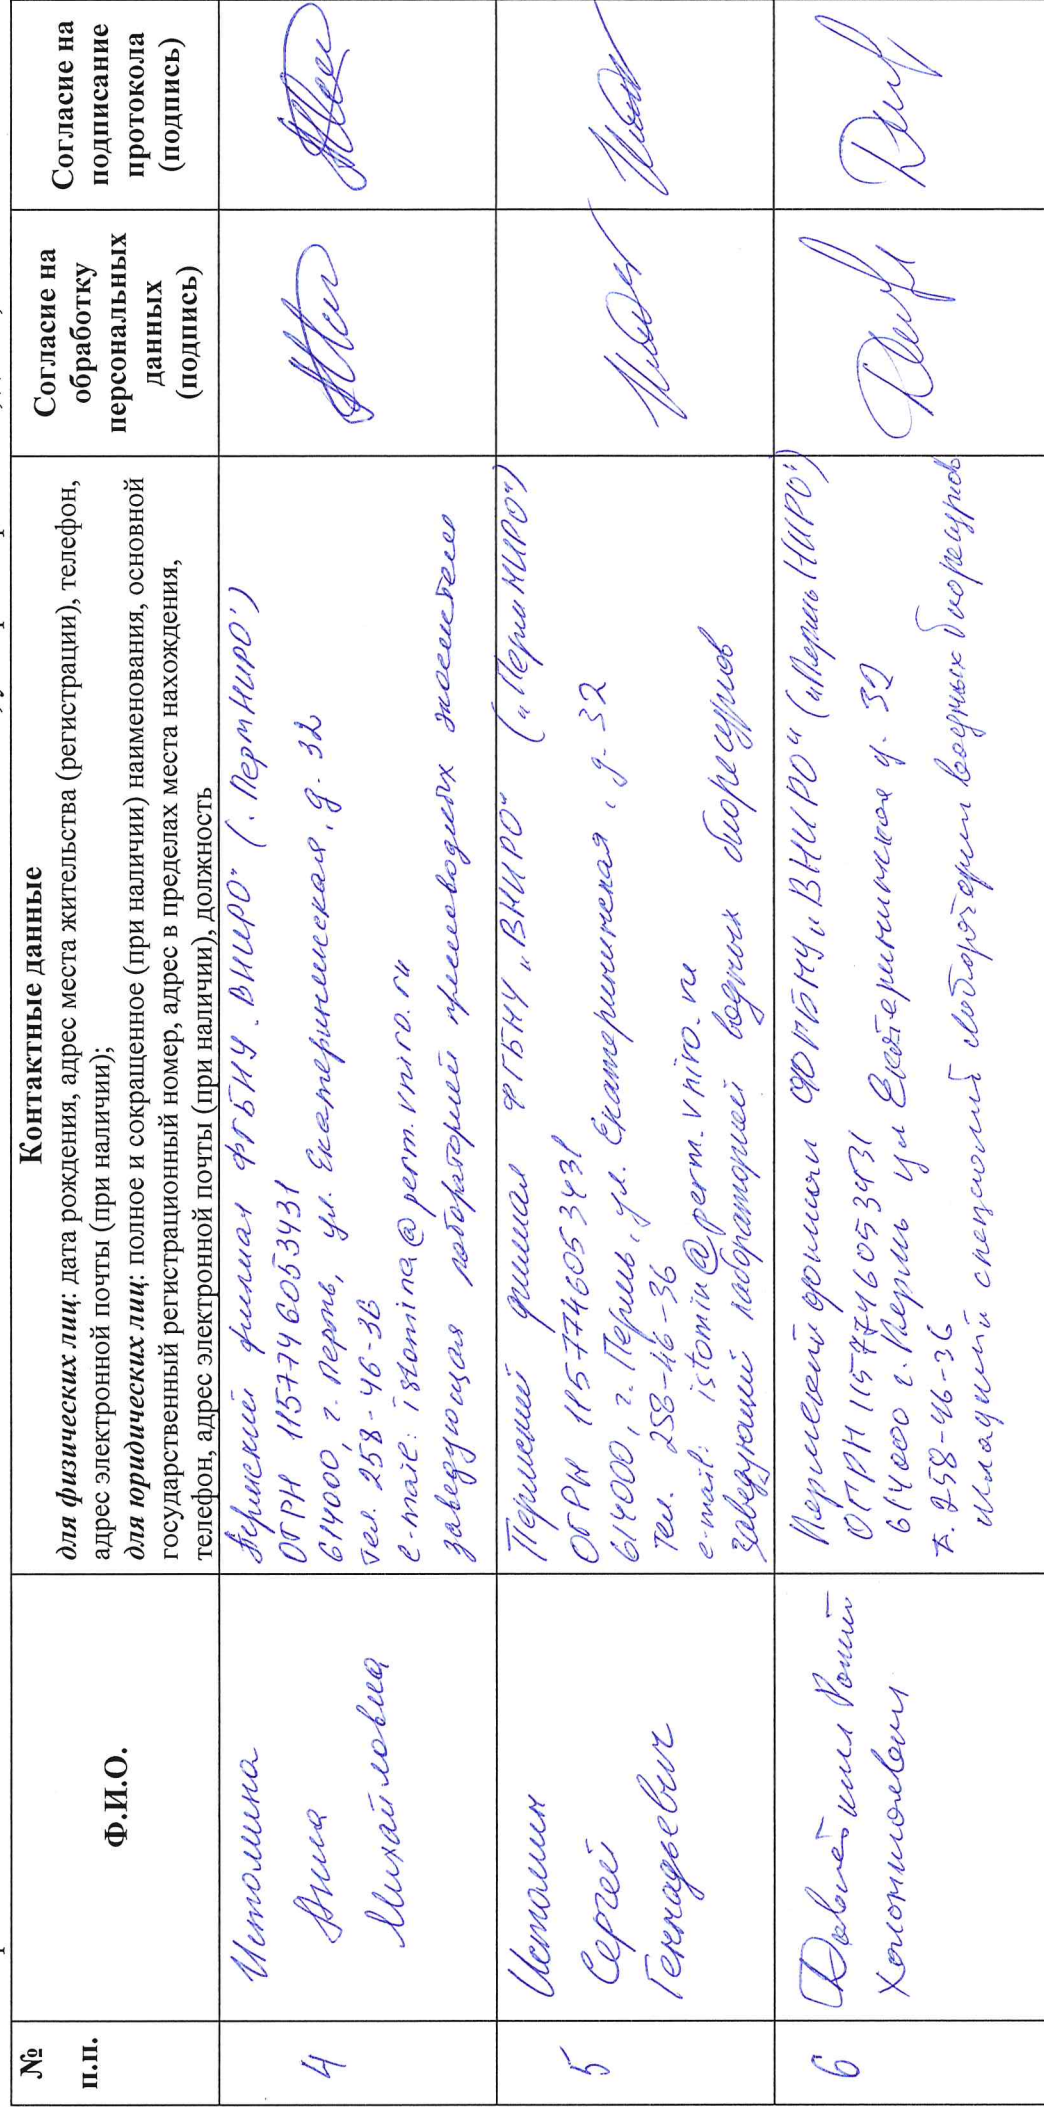 №
п.п.
Ф.И.О.
Контактные данные
для физических лиц: дата рождения, адрес места жительства (регистрации), телефон,
адрес электронной почты (при наличии);
для юридических лиц: полное и сокращенное (при наличии) наименования, основной
государственный регистрационный номер, адрес в пределах места нахождения,
телефон, адрес электронной почты (при наличии), должность
Согласие на
обработку
персональных
данных
(подпись)
Согласие на
подписание
протокола
(подпись)
4
Истомина
Анна
Михайловна
Пермский филиал ФГБНУ „ВНИРО" („ПермНИРО")
ОГРН 1157746053431
614000, г. Пермь, ул. Екатерининская, д. 32
тел. 258-46-36
e-mail: istomina@perm.vniro.ru
заведующая лабораторией экосистем
5
Истомин
Сергей
Геннадьевич
Пермский филиал ФГБНУ „ВНИРО" („ПермНИРО")
ОГРН 1157746053431
614000, г. Пермь, ул. Екатерининская, д. 32
тел. 258-46-36
e-mail: istomin@perm.vniro.ru
заведующий лабораторией водных биоресурсов
6
Пермский филиал ФГБНУ „ВНИРО" („ПермьНИРО")
ОГРН 1157746053431
614000 г. Пермь ул Екатерининская д. 32
т. 258-46-36
младший специалист лаборатории водных биоресурсов